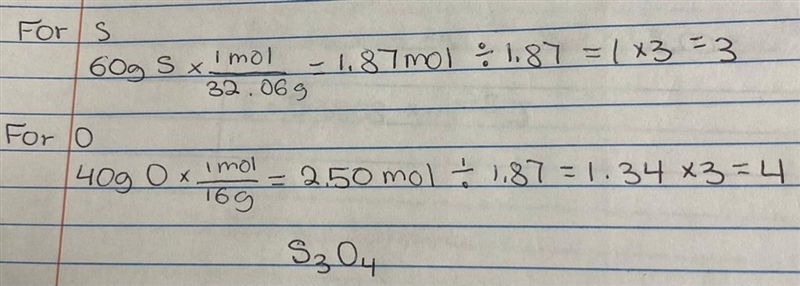 For S
60g S × 1 mol / 32.06g = 1.87 mol ÷ 1.87 = 1 × 3 = 3
For O
40g O × 1 mol / 16g = 2.50 mol ÷ 1.87 = 1.34 × 3 = 4
S₃O₄